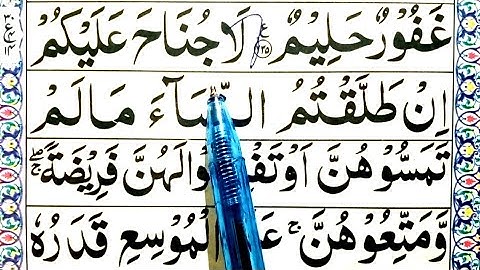 غَفُوْرٌ حَلِيْمٌ ۝٢٣٥ لَا جُنَاحَ عَلَيْكُمْ
اِنْ طَلَّقْتُمُ النِّسَآءَ مَا لَمْ
تَمَسُّوْهُنَّ اَوْ تَفْ لَهُنَّ فَرِيْضَةً ۖۚ
وَّمَتِّعُوْهُنَّ ۚ الْمُوْسِعِ قَدَرُهٗ